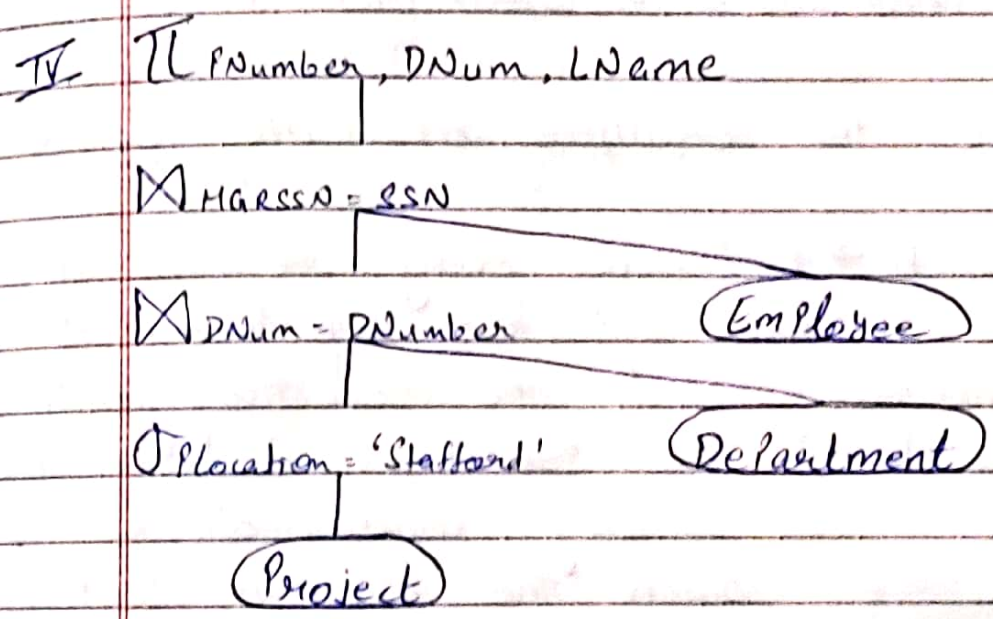 IV π PNumber, DNum, LName
⋈ MGRSSN = SSN
⋈ DNum = DNumber
Employee
σ Plocation = 'Stafford'
Department
Project